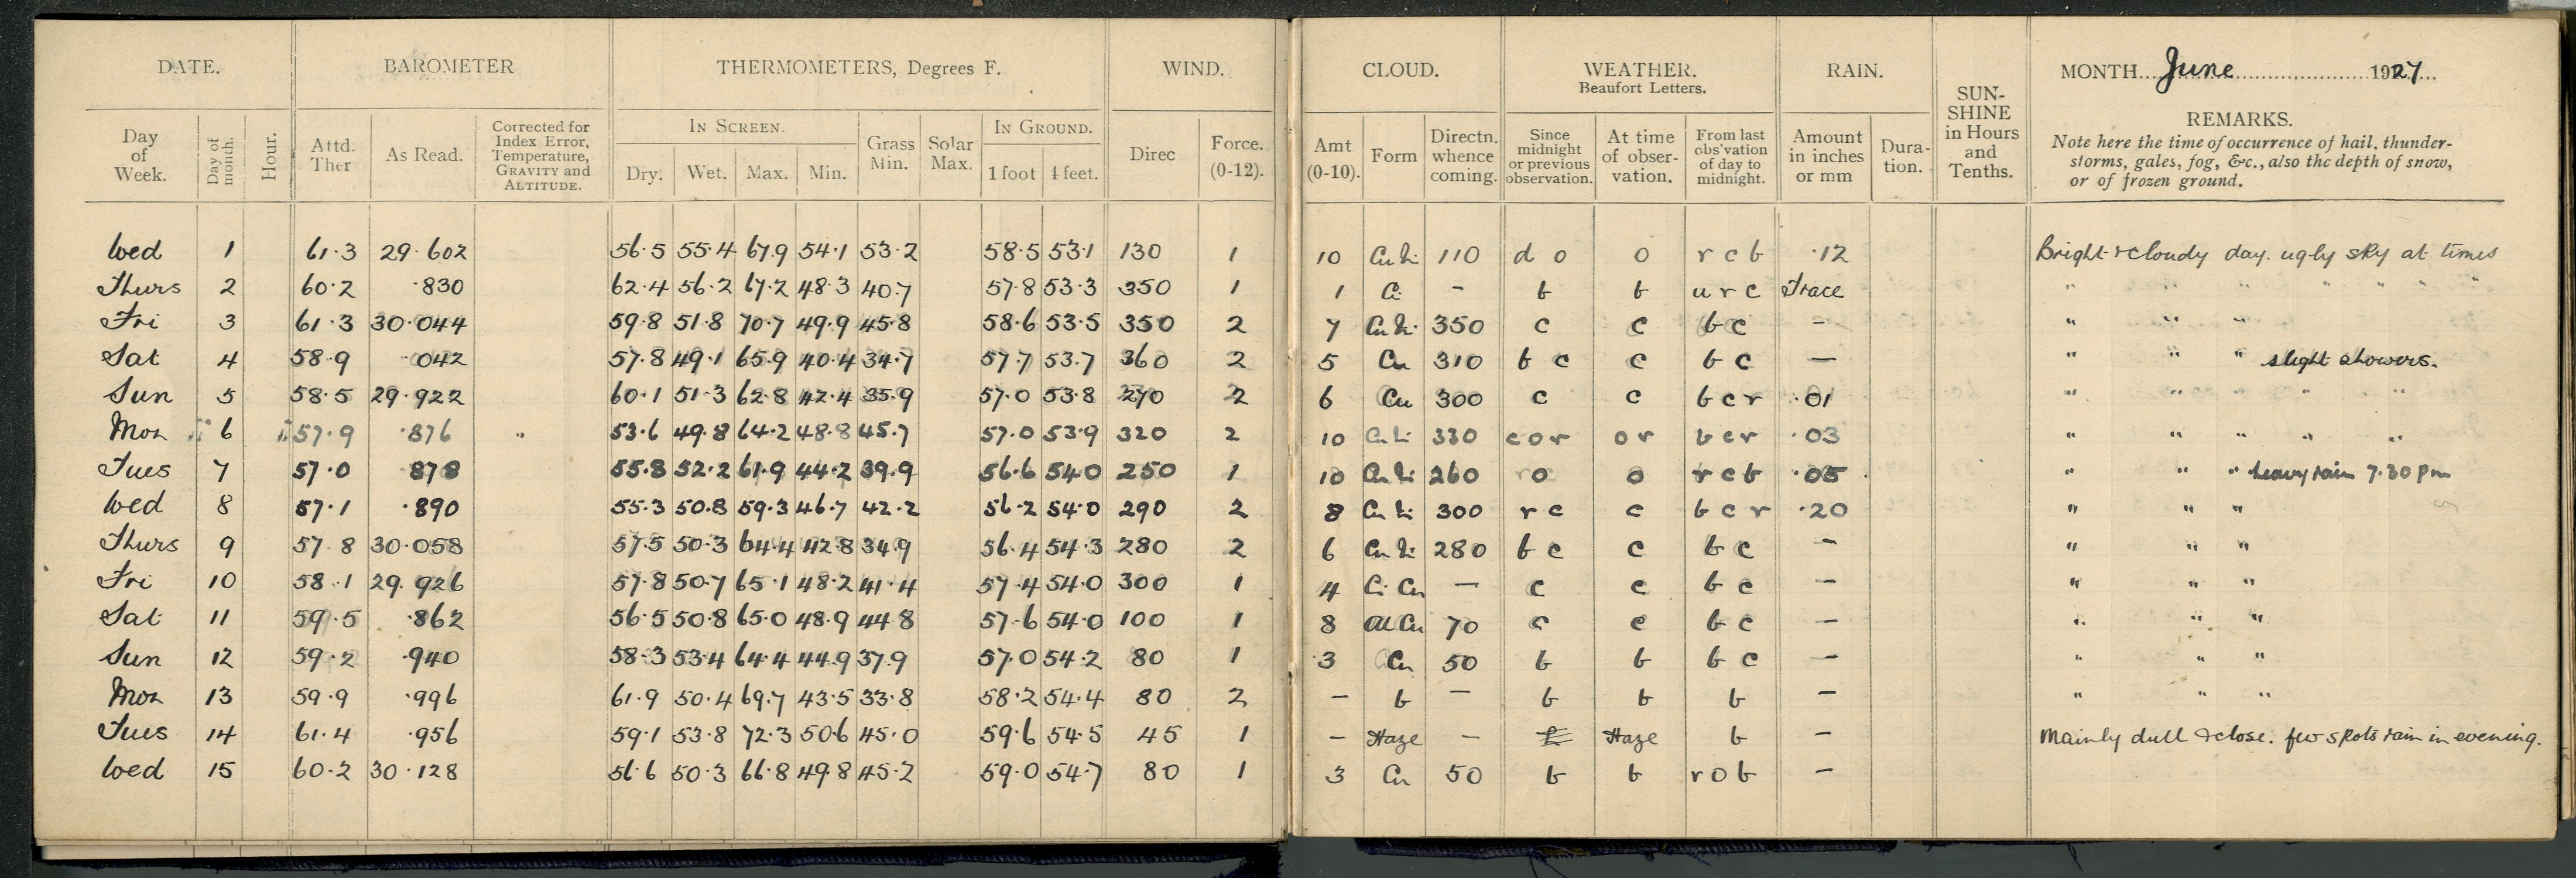 DATE. BAROMETER THERMOMETERS, Degrees F. WIND. CLOUD. WEATHER. Beaufort Letters. RAIN. SUN-SHINE in Hours and Tenths. MONTH June 1927
REMARKS.
Note here the time of occurrence of hail, thunder-
storms, gales, fog, &c., also the depth of snow,
or of frozen ground.
IN SCREEN. IN GROUND.
Day of Week. Day of month. Hour. Attd. Ther As Read. Corrected for Index Error, Temperature, GRAVITY and ALTITUDE. Dry. Wet. Max. Min. Grass Min. Solar Max. 1 foot 4 feet. Direc Force. (0-12). Amt (0-10). Form Directn. whence coming. Since midnight or previous observation. At time of obser-vation. From last obs'vation of day to midnight. Amount in inches or mm Dura-tion.
Wed 1 61.3 29.602 56.5 55.4 67.9 54.1 53.2 58.5 53.1 130 1 10 110 d o o r c b .12 Bright & cloudy day. ugly sky at times
Thurs 2 60.2 .830 62.4 56.2 67.2 48.3 40.7 57.8 53.3 350 1 1 Ci – b b u r c Trace " " " " " " "
Fri 3 61.3 30.044 59.8 51.8 70.7 49.9 45.8 58.6 53.5 350 2 7 350 c c b c – " " "
Sat 4 58.9 .042 57.8 49.1 65.9 40.4 34.7 57.7 53.7 360 2 5 Cu 310 b c c b c – " " " slight showers.
Sun 5 58.5 29.922 60.1 51.3 62.8 42.4 35.9 57.0 53.8 270 2 6 Cu 300 c c b c r .01 " " " " "
Mon 6 57.9 .876 53.6 49.8 64.2 48.8 45.7 57.0 53.9 320 2 10 330 c o r o r b c r .03 " " " " "
Tues 7 57.0 878 55.8 52.2 61.9 44.2 39.9 56.6 54.0 250 1 10 260 r o o r c b .05 " " " heavy rain 7.30 pm
Wed 8 57.1 .890 55.3 50.8 59.3 46.7 42.2 56.2 54.0 290 2 8 300 r c c b c r .20 " " "
Thurs 9 57 8 30.058 57.5 50.3 64.4 42.8 34.9 56.4 54.3 280 2 6 280 b c c b c – " " "
Fri 10 58.1 29.926 57.8 50.7 65.1 48.2 41.4 57.4 54.0 300 1 4 Ci Cu – c c b c – " " "
Sat 11 59.5 .862 56.5 50.8 65.0 48.9 44 8 57.6 54.0 100 1 8 Cu 70 c c b c – " " "
Sun 12 59.2 .940 58.3 53.4 64.4 44.9 37.9 57.0 54.2 80 1 3 Cu 50 b b b c – " " "
Mon 13 59.9 .996 61.9 50.4 69.7 43.5 33.8 58.2 54.4 80 2 – b – b b b – " " "
Tues 14 61.4 .956 59.1 53.8 72.3 50.6 45.0 59.6 54.5 45 1 – Haze – Haze b – Mainly dull & close. few spots rain in evening.
Wed 15 60.2 30.128 56.6 50.3 66.8 49.8 45.2 59.0 54.7 80 1 3 Cu 50 b b r o b –